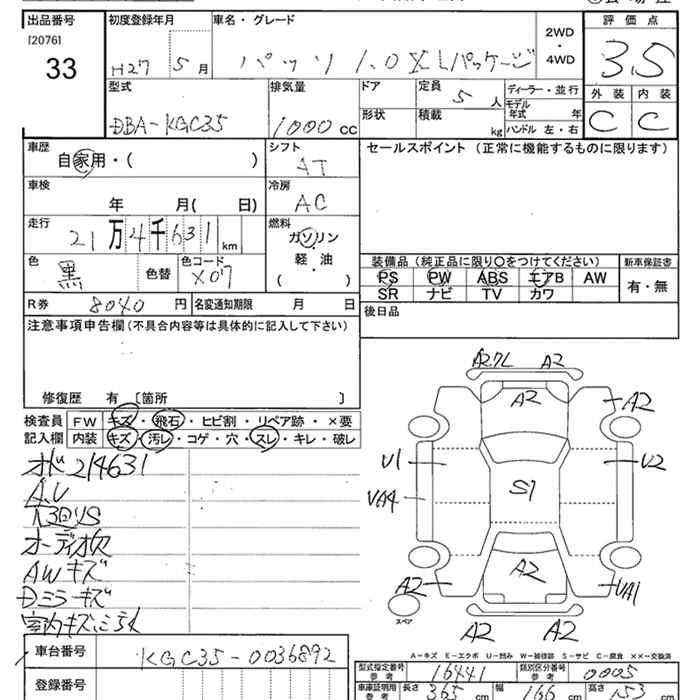 出品番号
[2076]
33
初度登録年月
H27 5月
車名・グレード
パッソ 1.0 XLパッケージ
2WD
・
4WD
評価点
3.5
外装 内装
C C
型式
DBA-KGC35
排気量
1000 CC
ドア
形状
定員
5 人
積載
kg
ディーラー・並行
モデル
年式 年
ハンドル 左・右
車歴
自家用・( )
シフト
AT
セールスポイント (正常に機能するものに限ります)
車検
年 月( 日)
冷房
AC
走行
21万4千631 km
燃料
ガソリン
軽・油
( )
色
黒
色替
色コード
X07
装備品(純正品に限り○をつけてください)
PS PW ABS エアB AW
SR ナビ TV カワ
新車保証書
有・無
R券 8040 円
名変通知期限 月 日
後日品
注意事項申告欄(不具合内容等は具体的に記入して下さい)
修復歴 有 〔箇所 〕
検査員
記入欄
FW キズ・飛石・ヒビ割・リペア跡・×要
内装 キズ・汚レ・コゲ・穴・スレ・キレ・破レ
オド214631
A.U
オーディオ欠
AWキズ
Dミラーキズ
A2.7L A2
A2
A2
U1
U2
VA4
S1
A2
A2
VA1
A2
A2
スペア
A-キズ E-エクボ U-凹み W-補修跡 S-サビ C-腐食 ××-交換済
車台番号
KGC35-0036892
登録番号
型式指定番号
参考
16441
類別区分番号
参考
0005
車庫証明用
参考
長さ 365 cm
幅 166 cm
高さ 153 cm